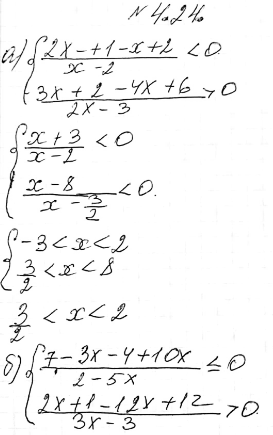 № 4.24.
а) { (2x-+1-x+2)/(x-2) < 0
(3x+2-4x+6)/(2x-3) > 0
{ (x+3)/(x-2) < 0
(x-8)/(x-3/2) < 0.
{ -3 < x < 2
3/2 < x < 8
3/2 < x < 2
б) { (7-3x-4+10x)/(2-5x) ≤ 0
(2x+1-12x+12)/(3x-3) > 0.